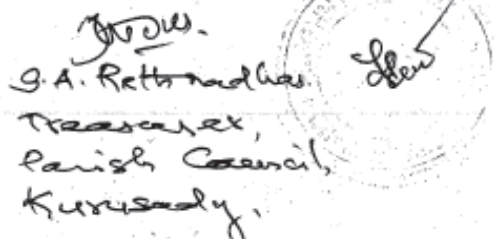 S.A. Rethnadhas
Treasurer,
Parish Council,
Kurusady.